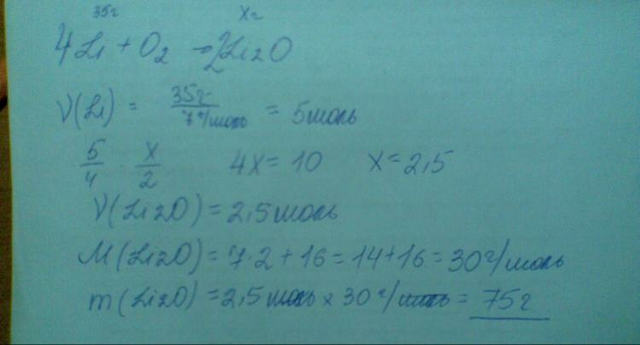 35г xг
4Li + O2 → 2Li2O
ν(Li) = 35г / 7г/моль = 5моль
5/4 x/2 4x = 10 x = 2,5
ν(Li2O) = 2,5моль
M(Li2O) = 7·2 + 16 = 14 + 16 = 30г/моль
m(Li2O) = 2,5моль x 30г/моль = 75г